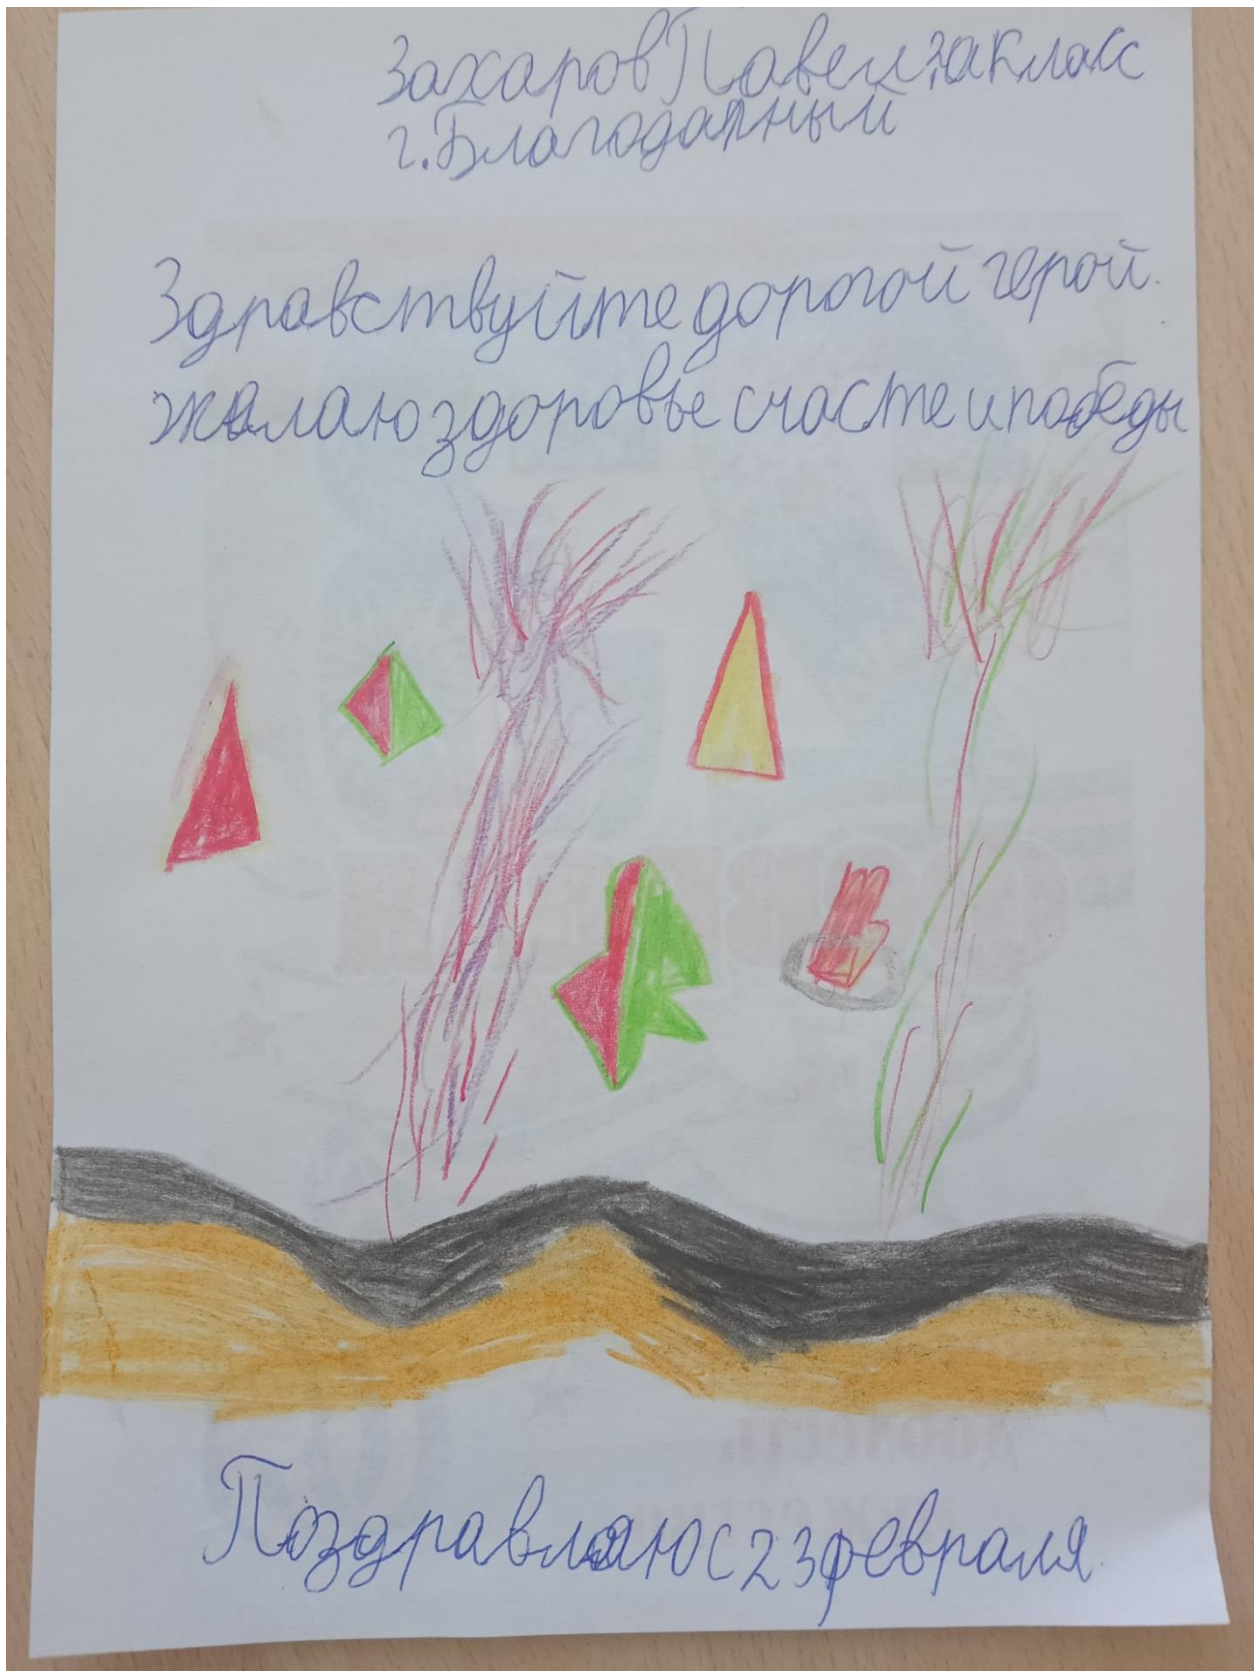 Захаров Павел 3а класс
г. Благодарный
Здравствуйте дорогой герой.
желаю здоровье счасте и победы
Поздравляю с 23 февраля.